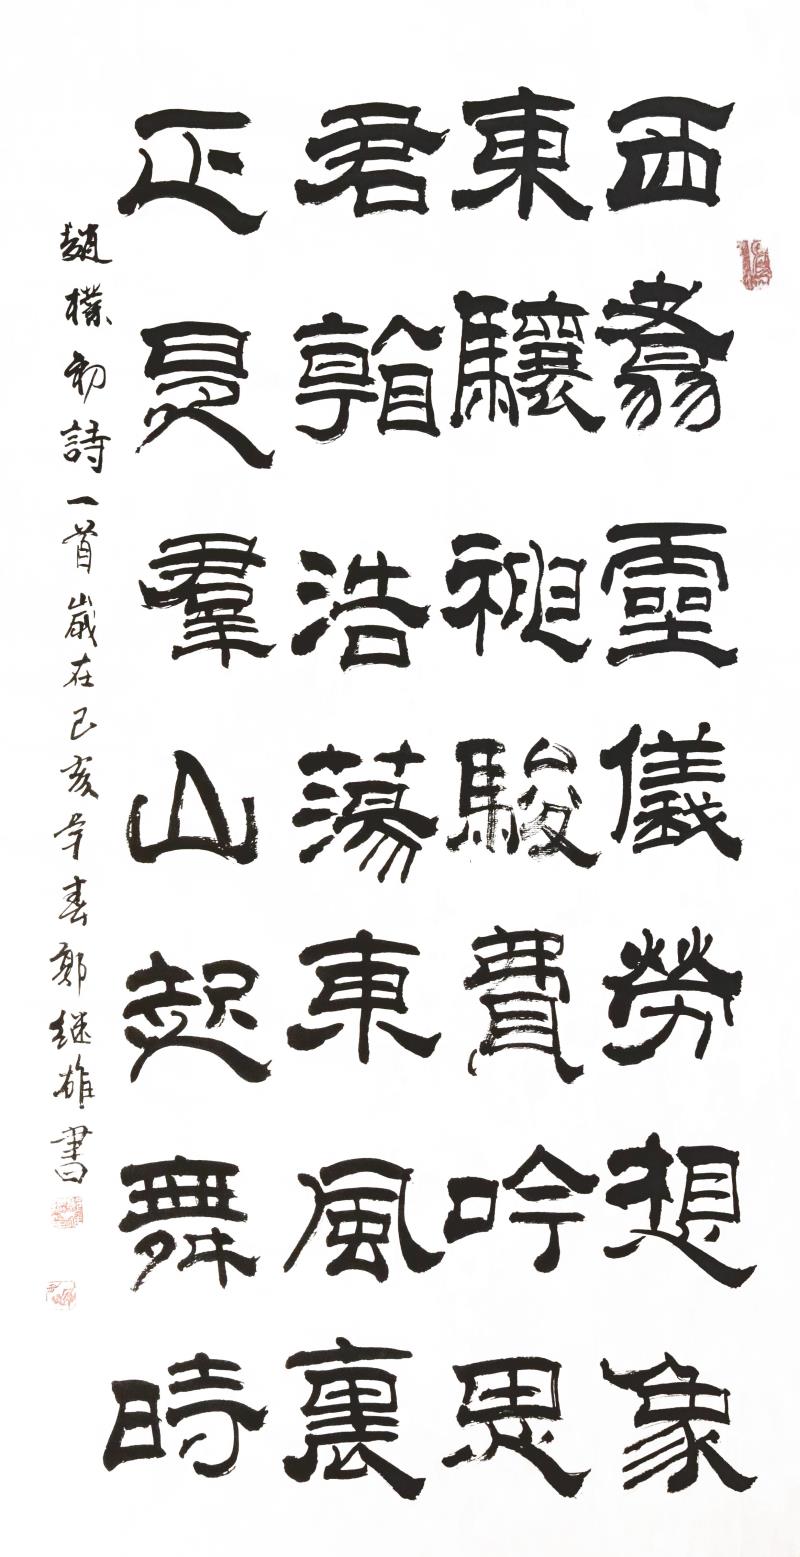 西翥靈儀勞想象
東驤神駿費吟思
君看浩蕩東風裏
正是羣山起舞時
趙樸初詩一首歲在己亥年春鄭继雄書